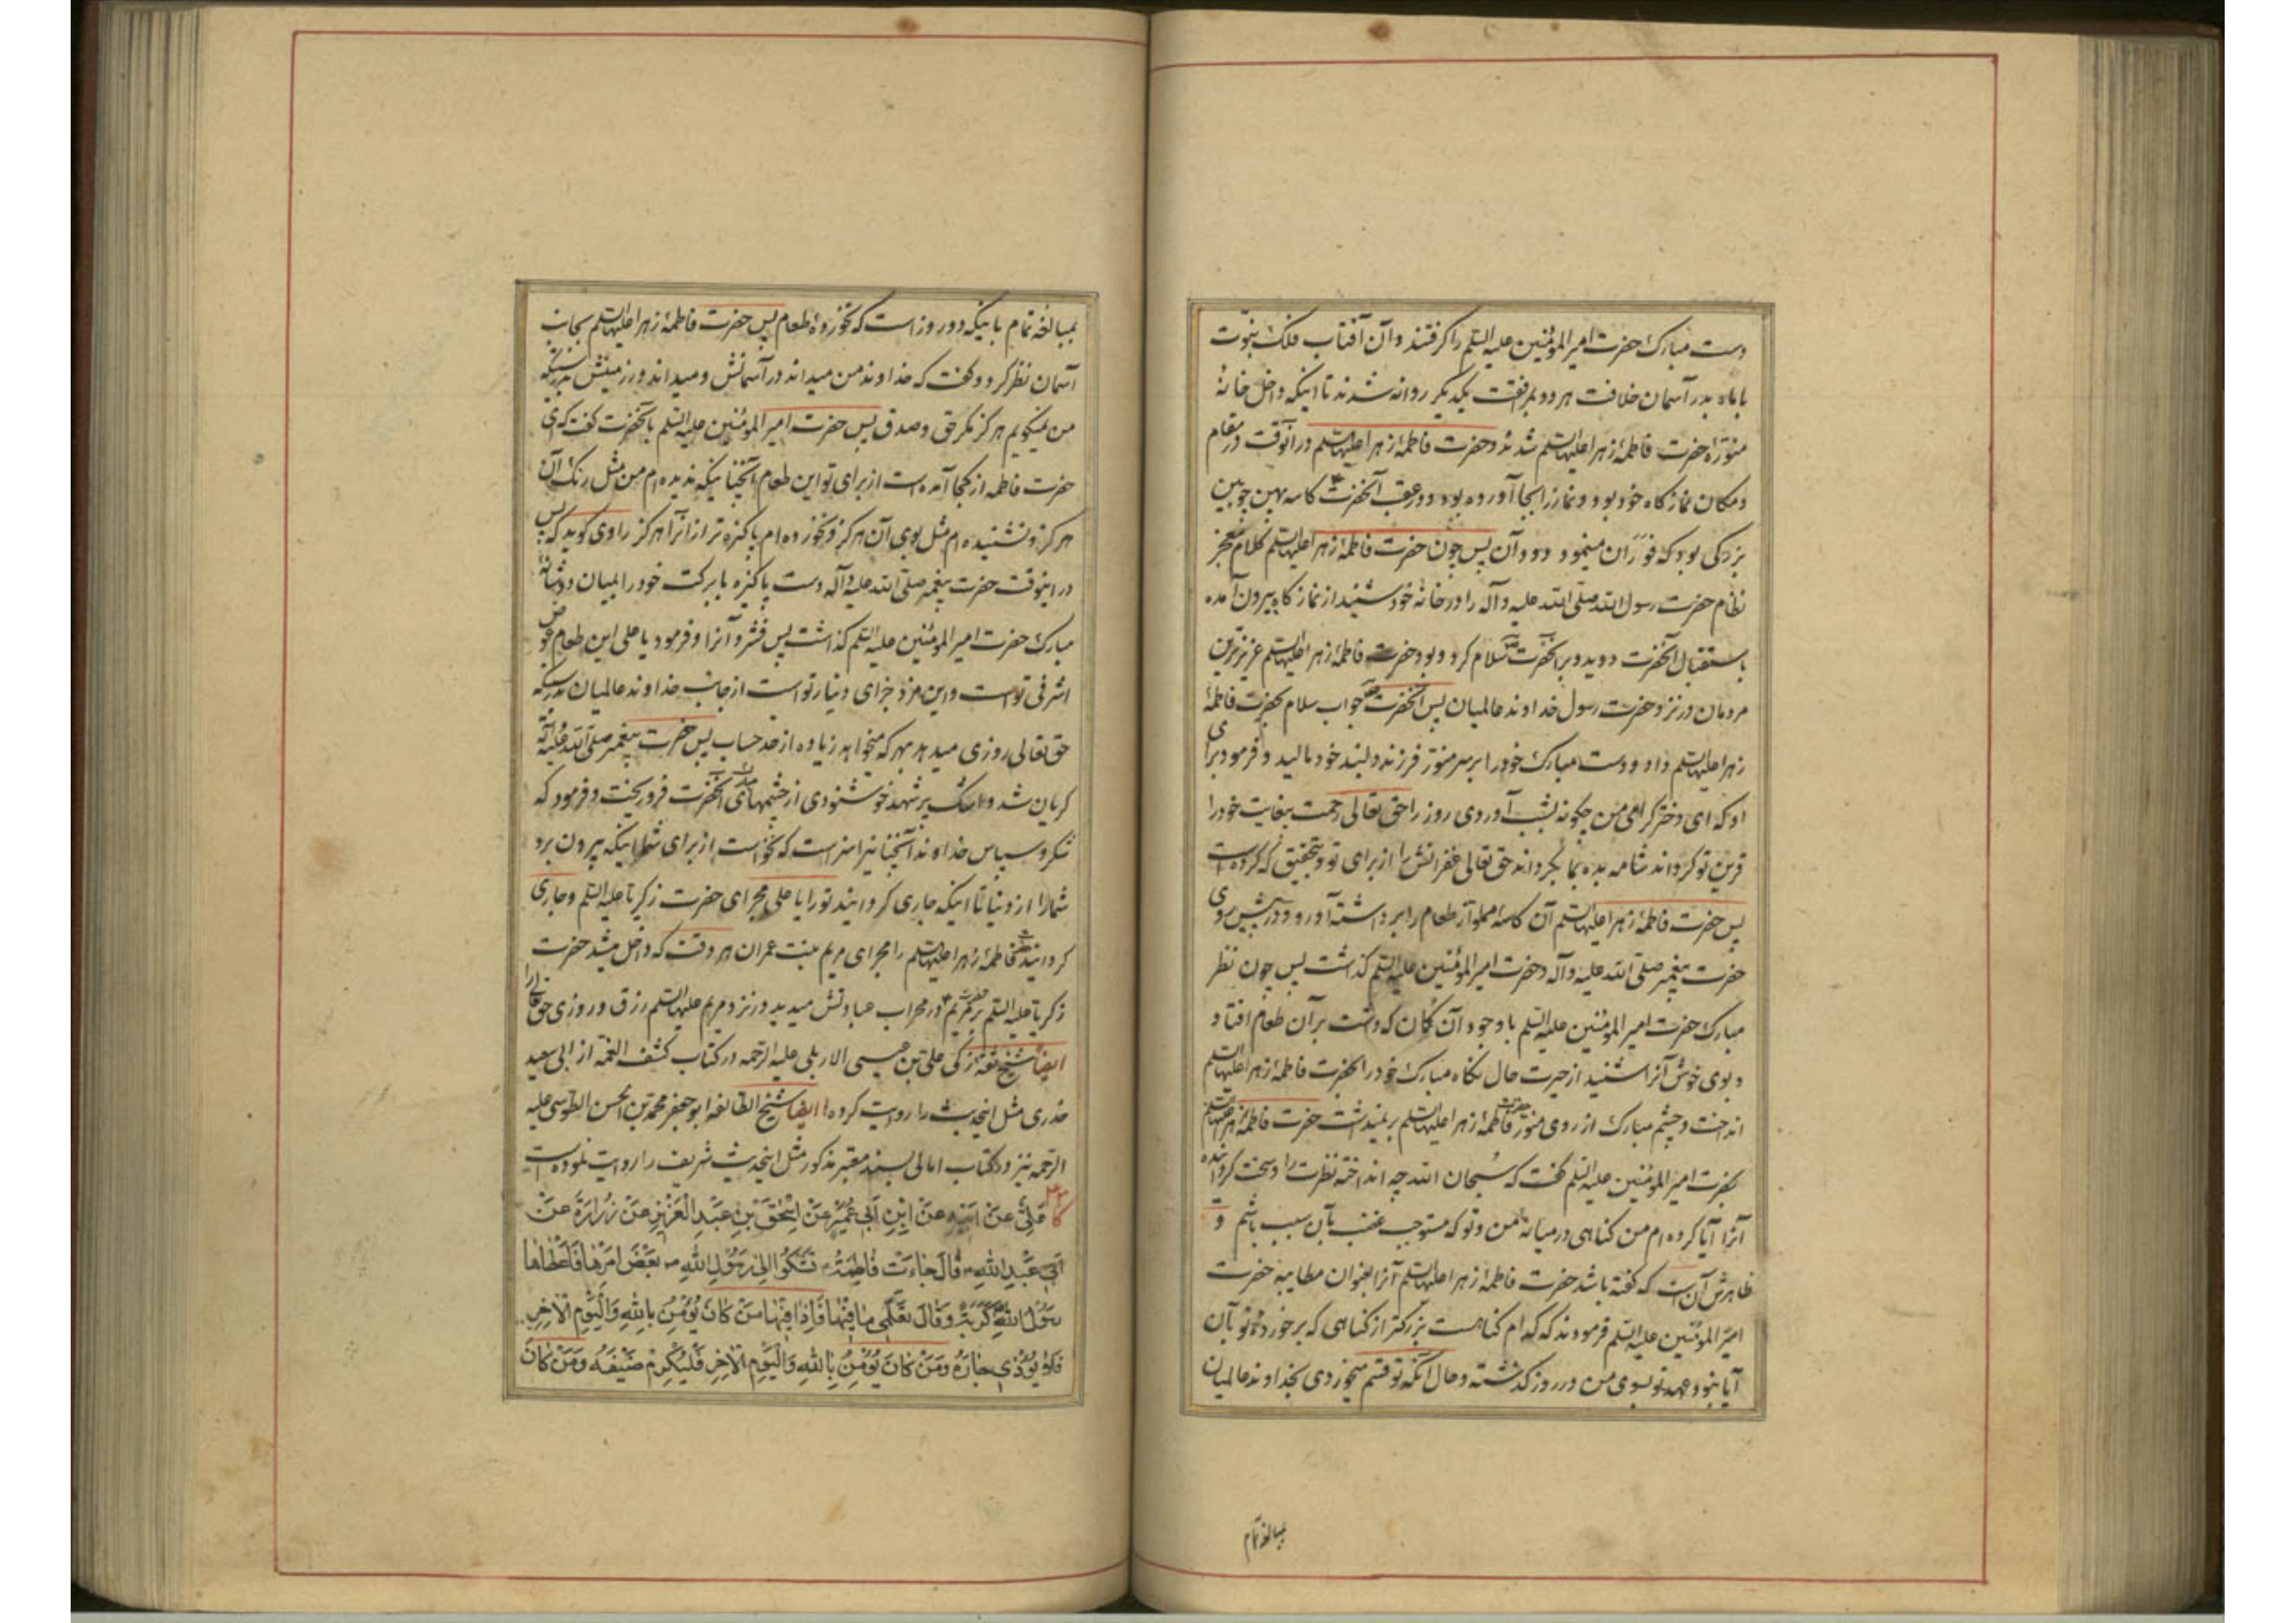 دست مبارک حضرت امیر المؤمنین علیه السلم را گرفتند و آن آفتاب فلک نبوّت
با ماه بدر آسمان خلافت هر دو بمرافقت یکدیگر روانه شدند تا اینکه داخل خانهٔ
منوّرهٔ حضرت فاطمهٔ زهرا علیها السلم شدند و حضرت فاطمهٔ زهرا علیها السلم در آنوقت در مقام
و مکان نماز گاه خود بود و نماز را بجا آورده بود و در عقب آنحضرت کاسه بهن چوبین
بزرگی بود که فوران مینمود دود آن پس چون حضرت فاطمهٔ زهرا علیها السلم کلام معجز
نظام حضرت رسول الله صلّی الله علیه و آله را در خانهٔ خود شنید از نماز گاه بیرون آمده
باستقبال آنحضرت دوید و بر آنحضرت سلام کرد و بود حضرت فاطمهٔ زهرا علیها السلم عزیزترین
مردمان در نزد حضرت رسول خداوند عالمیان پس آنحضرت جواب سلام بحضرت فاطمهٔ
زهرا علیها السلم داد و دست مبارک خود را بر سر منوّر فرزند دلبند خود مالید و فرمود برای
او که ای دختر گرامی من چگونه بشب آوردی روز را حق تعالی رحمت بیغایت خود را
قرین تو گرداند شام بده بما بگرداند حق تعالی غفرانش را از برای تو و بتحقیق که کرده است
پس حضرت فاطمهٔ زهرا علیها السلم آن کاسهٔ مملو از طعام را برداشته آورد و در پیش روی
حضرت پیغمبر صلّی الله علیه و آله و حضرت امیر المؤمنین علیه السلم گذاشت پس چون نظر
مبارک حضرت امیر المؤمنین علیه السلم با وجود آن گمان که داشت بر آن طعام افتاد
و بوی خوش آنرا شنید از حیرت حال نگاه مبارک خود را بحضرت فاطمهٔ زهرا علیها السلم
انداخت و چشم مبارک از روی منوّر حضرت فاطمهٔ زهرا علیها السلم بر نمیداشت حضرت فاطمهٔ زهرا علیها السلم
بحضرت امیر المؤمنین علیه السلم گفت که سُبحان الله چه انداختهٔ نظرت را و سخت گردانیده
آنرا آیا کرده ام من گناهی در میانهٔ من و تو که مستوجب غضب بآن سبب باشم و
ظاهرش آن است که گفته باشد حضرت فاطمهٔ زهرا علیها السلم آنرا بعنوان مطایبه حضرت
امیر المؤمنین علیه السلم فرمودند که کدام گناهست بزرگتر از گناهی که برخوردهٔ تو بآن
آیا نبود عهد تو بسوی من در روز گذشته و حال آنکه تو قسم میخوردی بخداوند عالمیان
بمبالغه تمام
بمبالغهٔ تمام باینکه دو روز است که نخوردهٔ طعام پس حضرت فاطمهٔ زهرا علیها السلم بجانب
آسمان نظر کرد و گفت که خداوند من میداند در آسمانش و میداند در زمینش بدرستیکه
من نمیگویم هرگز مگر حق و صدق پس حضرت امیر المؤمنین علیه السلم بآنحضرت گفت که ای
حضرت فاطمه از کجا آمده است از برای تو این طعام آنچنانیکه ندیده ام من مثل رنگ آن
هرگز و نشنیده ام مثل بوی آن هرگز و نخورده ام پاکیزه تر از آنرا هرگز راوی گوید که پس
در اینوقت حضرت پیغمبر صلّی الله علیه و آله دست پاکیزه با برکت خود را بمیان دو شانهٔ
مبارک حضرت امیر المؤمنین علیه السلم گذاشت پس فشرد آنرا و فرمود یا علی این طعام عوض
اشرفی تو است و این مزد جزای دینار تو است از جانب خداوند عالمیان بدرستیکه
حق تعالی روزی میدهد بهر که میخواهد زیاده از حد حساب پس حضرت پیغمبر صلّی الله علیه و آله
گریان شد و اشک پر شهد خوشنودی از چشمهای آنحضرت فرو ریخت و فرمود که
شکر و سپاس خداوند آنچنانیرا سزاست که نخواست از برای شما اینکه بیرون برد
شما را از دنیا تا اینکه جاری گردانید تو را یا علی مجرای حضرت زکریا علیه السلم و جاری
گردانید فاطمهٔ زهرا علیها السلم را مجرای مریم بنت عمران هر وقت که داخل میشد حضرت
زکریا علیه السلم بر مریم در محراب عبادتش میدید در نزد مریم علیها السلم رزق و روزی حق تعالی را
ایضا شیخ ثقه زکی علی بن عیسی الاربلی علیه الرحمه در کتاب کشف الغمه از ابی سعید
خدری مثل اینحدیث را روایت کرده ایضا شیخ الطایفه ابو جعفر محمد بن الحسن الطوسی علیه
الرحمه نیز در کتاب امالی بسند معتبر مذکور مثل اینحدیث شریف را روایت نموده است
کا عَلِیٌّ عَنْ اَبیهِ عَنْ ابْنِ اَبی عُمَیْرٍ عَنْ اِسْحٰقَ بْنِ عَبْدِ الْعَزیزِ عَنْ زُرارَةَ عَنْ
اَبی عَبْدِ اللهِ قالَ جاءَتْ فاطِمَةُ تَشْکُوا اِلیٰ رَسُولِ اللهِ بَعْضَ اَمْرِها فَاَعْطاها
رَسُولُ اللهِ کُرَیْبَةً وَقالَ تَعَلَّمی ما فیها فَاِذا فیها مَنْ کانَ یُؤْمِنُ بِاللهِ وَالْیَوْمِ الْاٰخِرِ
فَلا یُؤْذی جارَهُ وَمَنْ کانَ یُؤْمِنُ بِاللهِ وَالْیَوْمِ الْاٰخِرِ فَلْیُکْرِمْ ضَیْفَهُ وَمَنْ کانَ